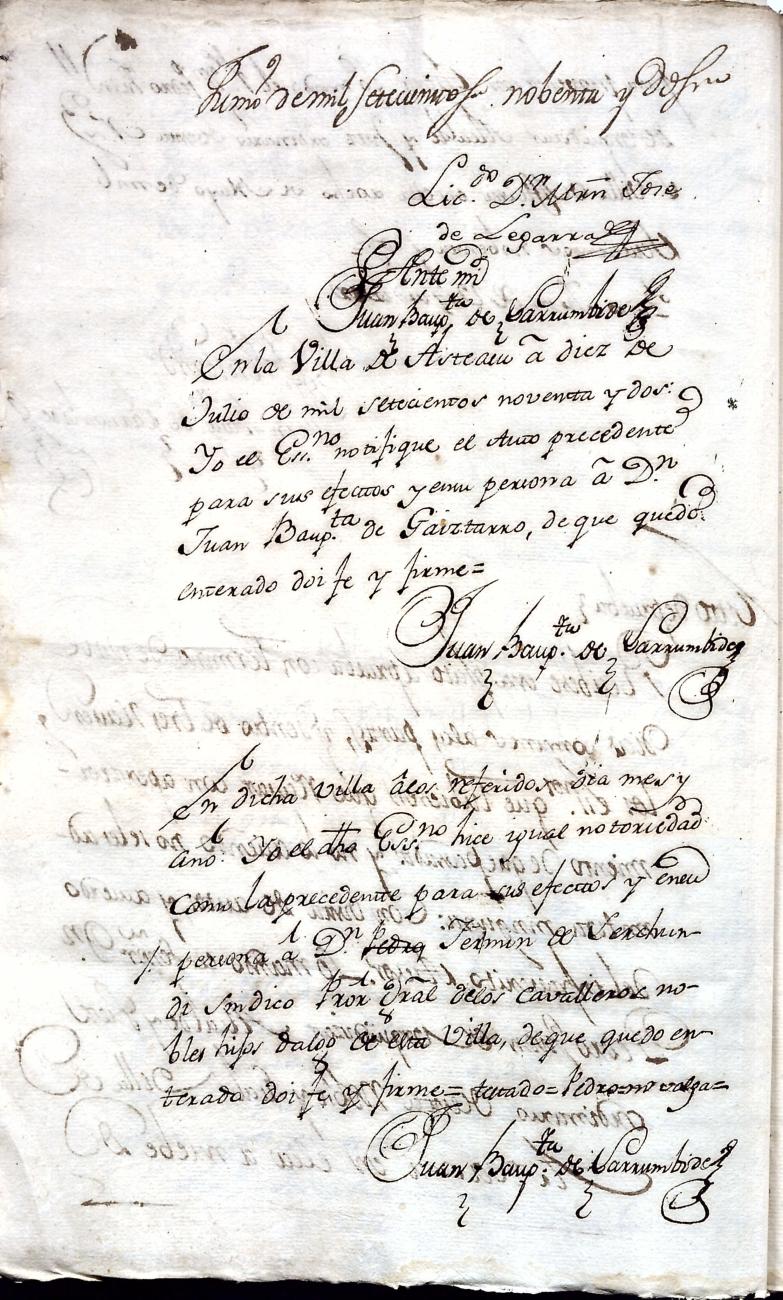 de mil setecientos nobenta y dos
Lic.do D.n Mrñ Jose
de Legarra
Ante mi
Juan Baup.ta de Larrumbide
En la Villa de Asteasu â diez de
Julio de mil setecientos noventa y dos:
Yo el Ess.no notifique el Auto precedente
para sus efectos y en su persona â D.n
Juan Baup.ta de Gaiztarro, de que quedó
enterado doi fe y firme=
Juan Baup.ta de Larrumbide
En dicha Villa â los referidos dia mes y
año: Yo el dho Ess.no hice igual notoriedad
como la precedente para sus efectos y en su
persona a D.n Pedro Fermin de Serchun-
di sindico Pror Gral de los Cavalleros no-
bles hijos dalgo de esta Villa, de que quedo en-
terado doi fe y firme= testado= Pedro= no valga=
Juan Baup.ta de Larrumbide